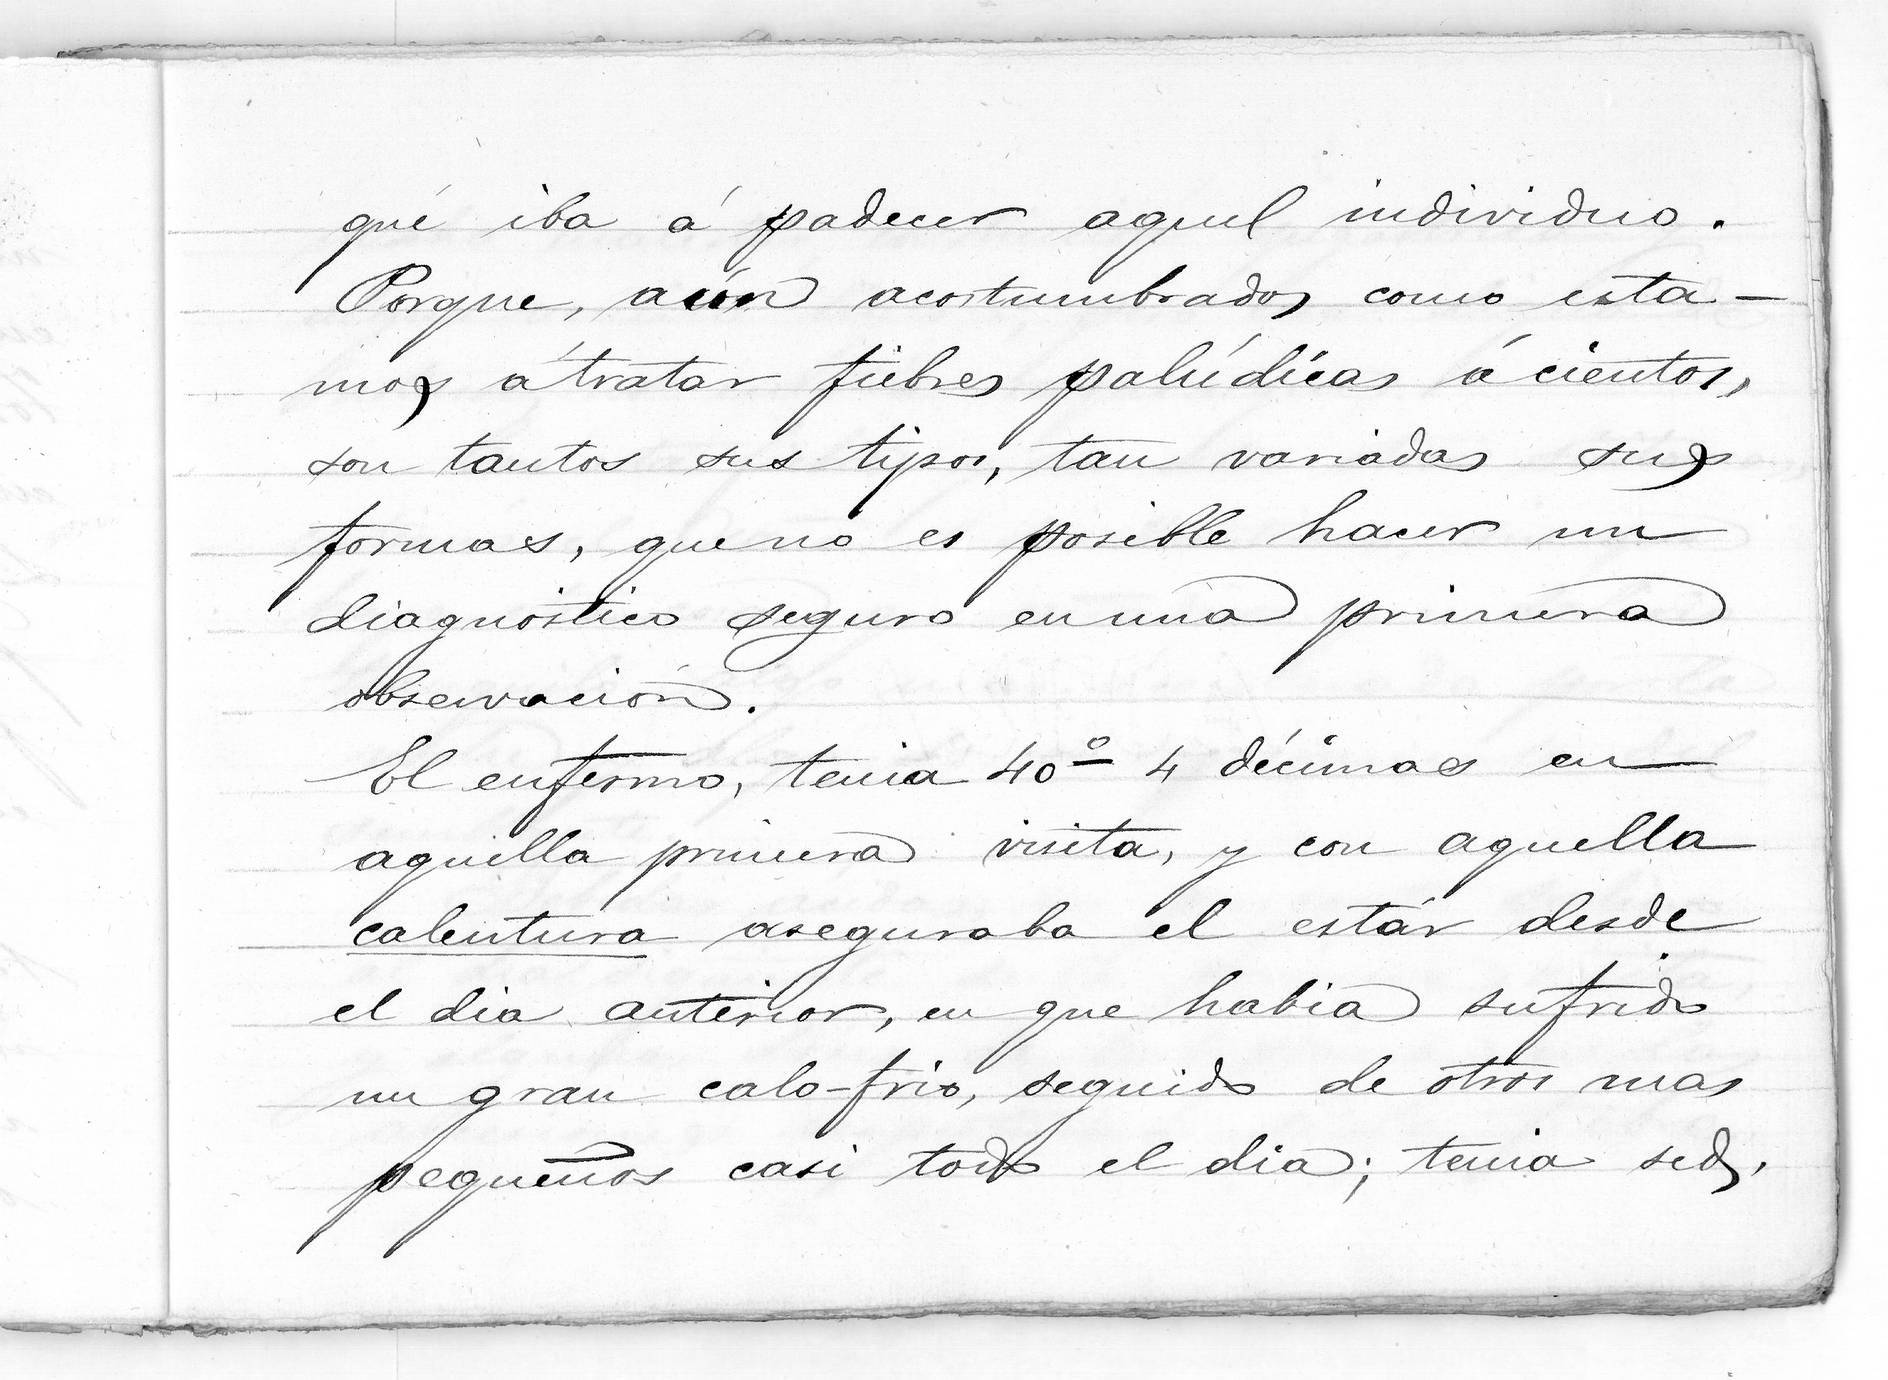 qué iba á padecer aquel individuo.
Porque, aún acostumbrados como esta-
mos á tratar fiebres palúdicas á cientos,
son tantos sus tipos, tan variadas sus
formas, que no es posible hacer un
diagnóstico seguro en una primera
observación.
El enfermo, tenia 40º 4 décimas en
aquella primera visita, y con aquella
calentura aseguraba el estár desde
el dia anterior, en que habia sufrido
un gran calo-frio, seguido de otros mas
pequeños casi todo el dia; tenia sed,